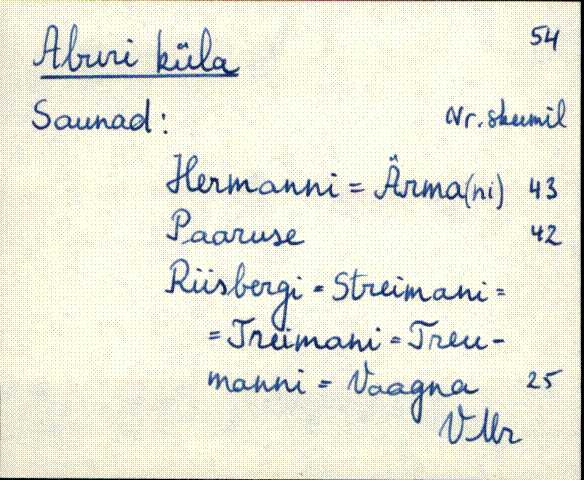 Aburi küla 54
Saunad: Nr. skeemil
Hermanni = Ärma(ni) 43
Paaruse 42
Riisbergi = Streimani =
= Treimani = Treu-
manni = Vaagna 25
VMr